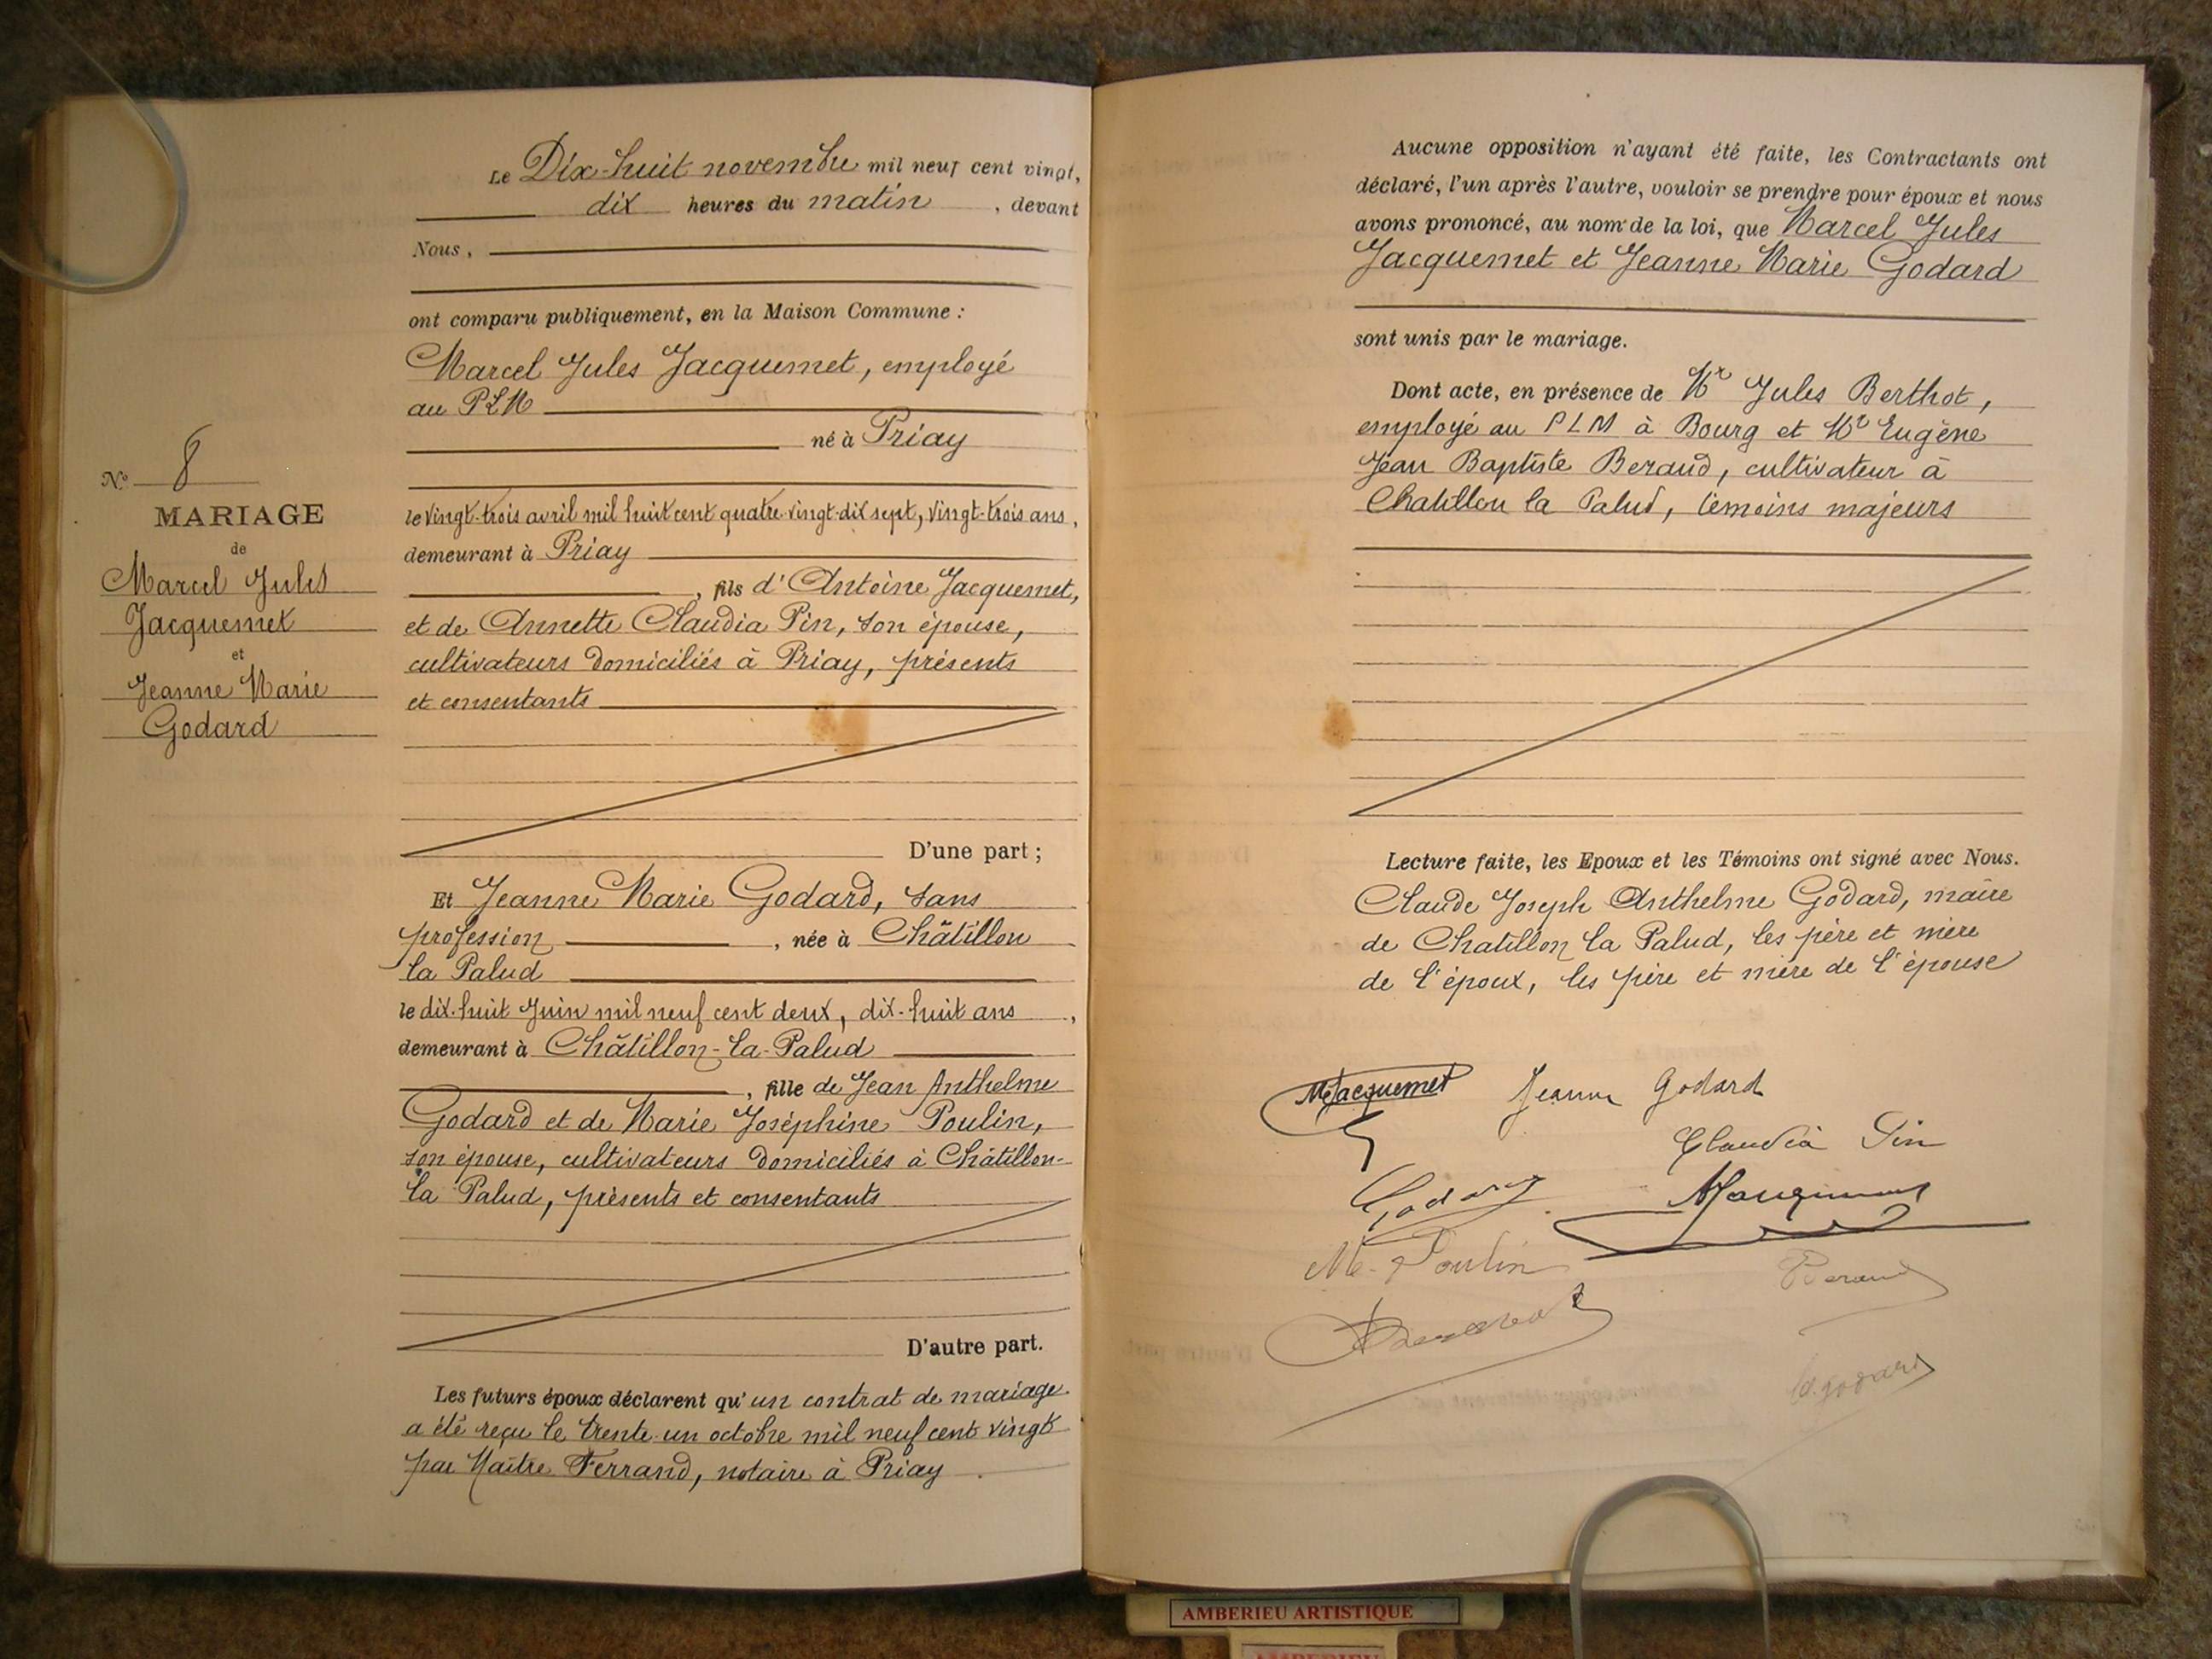 N° 8
MARIAGE
de
Marcel Jules
Jacquemet
et
Jeanne Marie
Godard
Le Dix-huit novembre mil neuf cent vingt,
dix heures du matin, devant
Nous,
ont comparu publiquement, en la Maison Commune :
Marcel Jules Jacquemet, employé
au PLM
né à Priay
le vingt-trois avril mil huit cent quatre-vingt-dix sept, vingt-trois ans,
demeurant à Priay
, fils d'Antoine Jacquemet,
et de Annette Claudia Pin, son épouse,
cultivateurs domiciliés à Priay, présents
et consentants
D'une part ;
Et Jeanne Marie Godard, sans
profession, née à Châtillon
la Palud
le dix-huit Juin mil neuf cent deux, dix-huit ans,
demeurant à Châtillon-la-Palud
, fille de Jean Anthelme
Godard et de Marie Joséphine Poulin,
son épouse, cultivateurs domiciliés à Châtillon-
la Palud, présents et consentants
D'autre part.
Les futurs époux déclarent qu'un contrat de mariage
a été reçu le trente-un octobre mil neuf cent vingt
par Maître Ferrand, notaire à Priay.
Aucune opposition n'ayant été faite, les Contractants ont
déclaré, l'un après l'autre, vouloir se prendre pour époux et nous
avons prononcé, au nom de la loi, que Marcel Jules
Jacquemet et Jeanne Marie Godard
sont unis par le mariage.
Dont acte, en présence de Mr Jules Berthot,
employé au PLM à Bourg et Mr Eugène
Jean Baptiste Beraud, cultivateur à
Chatillon la Palud, témoins majeurs
Lecture faite, les Epoux et les Témoins ont signé avec Nous.
Claude Joseph Anthelme Godard, maire
de Chatillon la Palud, les père et mère
de l'époux, les père et mère de l'épouse
MJacquemet Jeanne Godard
Claudia Pin
Godard
M. Poulin
Beraud
Godard
AMBERIEU ARTISTIQUE
AMBERIEU